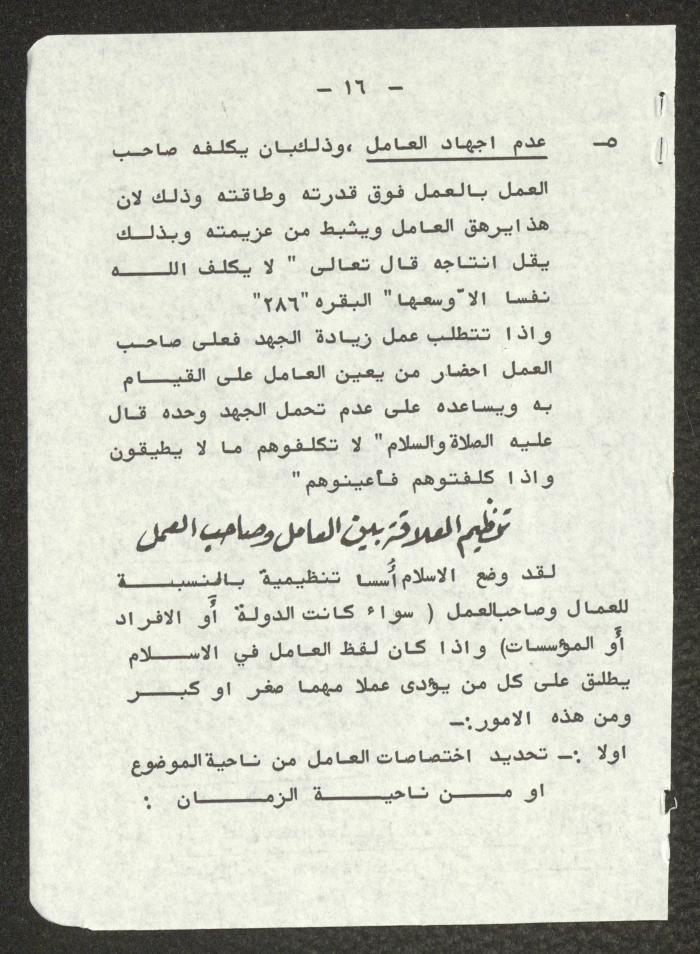 - ١٦ -
٥- عدم اجهاد العامل ،وذلكبان يكلفه صاحب
العمل بالعمل فوق قدرته وطاقته وذلك لان
هذايرهق العامل ويثبط من عزيمته وبذلك
يقل انتاجه قال تعالى " لا يكلف اللـــه
نفسا الاّوسعها" البقره "٢٨٦"
واذا تتطلب عمل زيادة الجهد فعلى صاحب
العمل احضار من يعين العامل على القيـام
به ويساعده على عدم تحمل الجهد وحده قال
عليه الصلاة والسلام" لا تكلفوهم ما لا يطيقون
واذا كلفتوهم فأعينوهم"
توظيم العلاقة بين العامل وصاحب العمل
لقد وضع الاسلام أُسسا تنظيمية بالنسبــة
للعمال وصاحبالعمل ( سواء كانت الدولة أَو الافراد
أَو المؤسسات) واذا كان لفظ العامل في الاســلام
يطلق على كل من يؤدى عملا مهما صغر او كبــر
ومن هذه الامور:-
اولا :- تحديد اختصاصات العامل من ناحيةالموضوع
او مــن ناحيــة الزمــان :